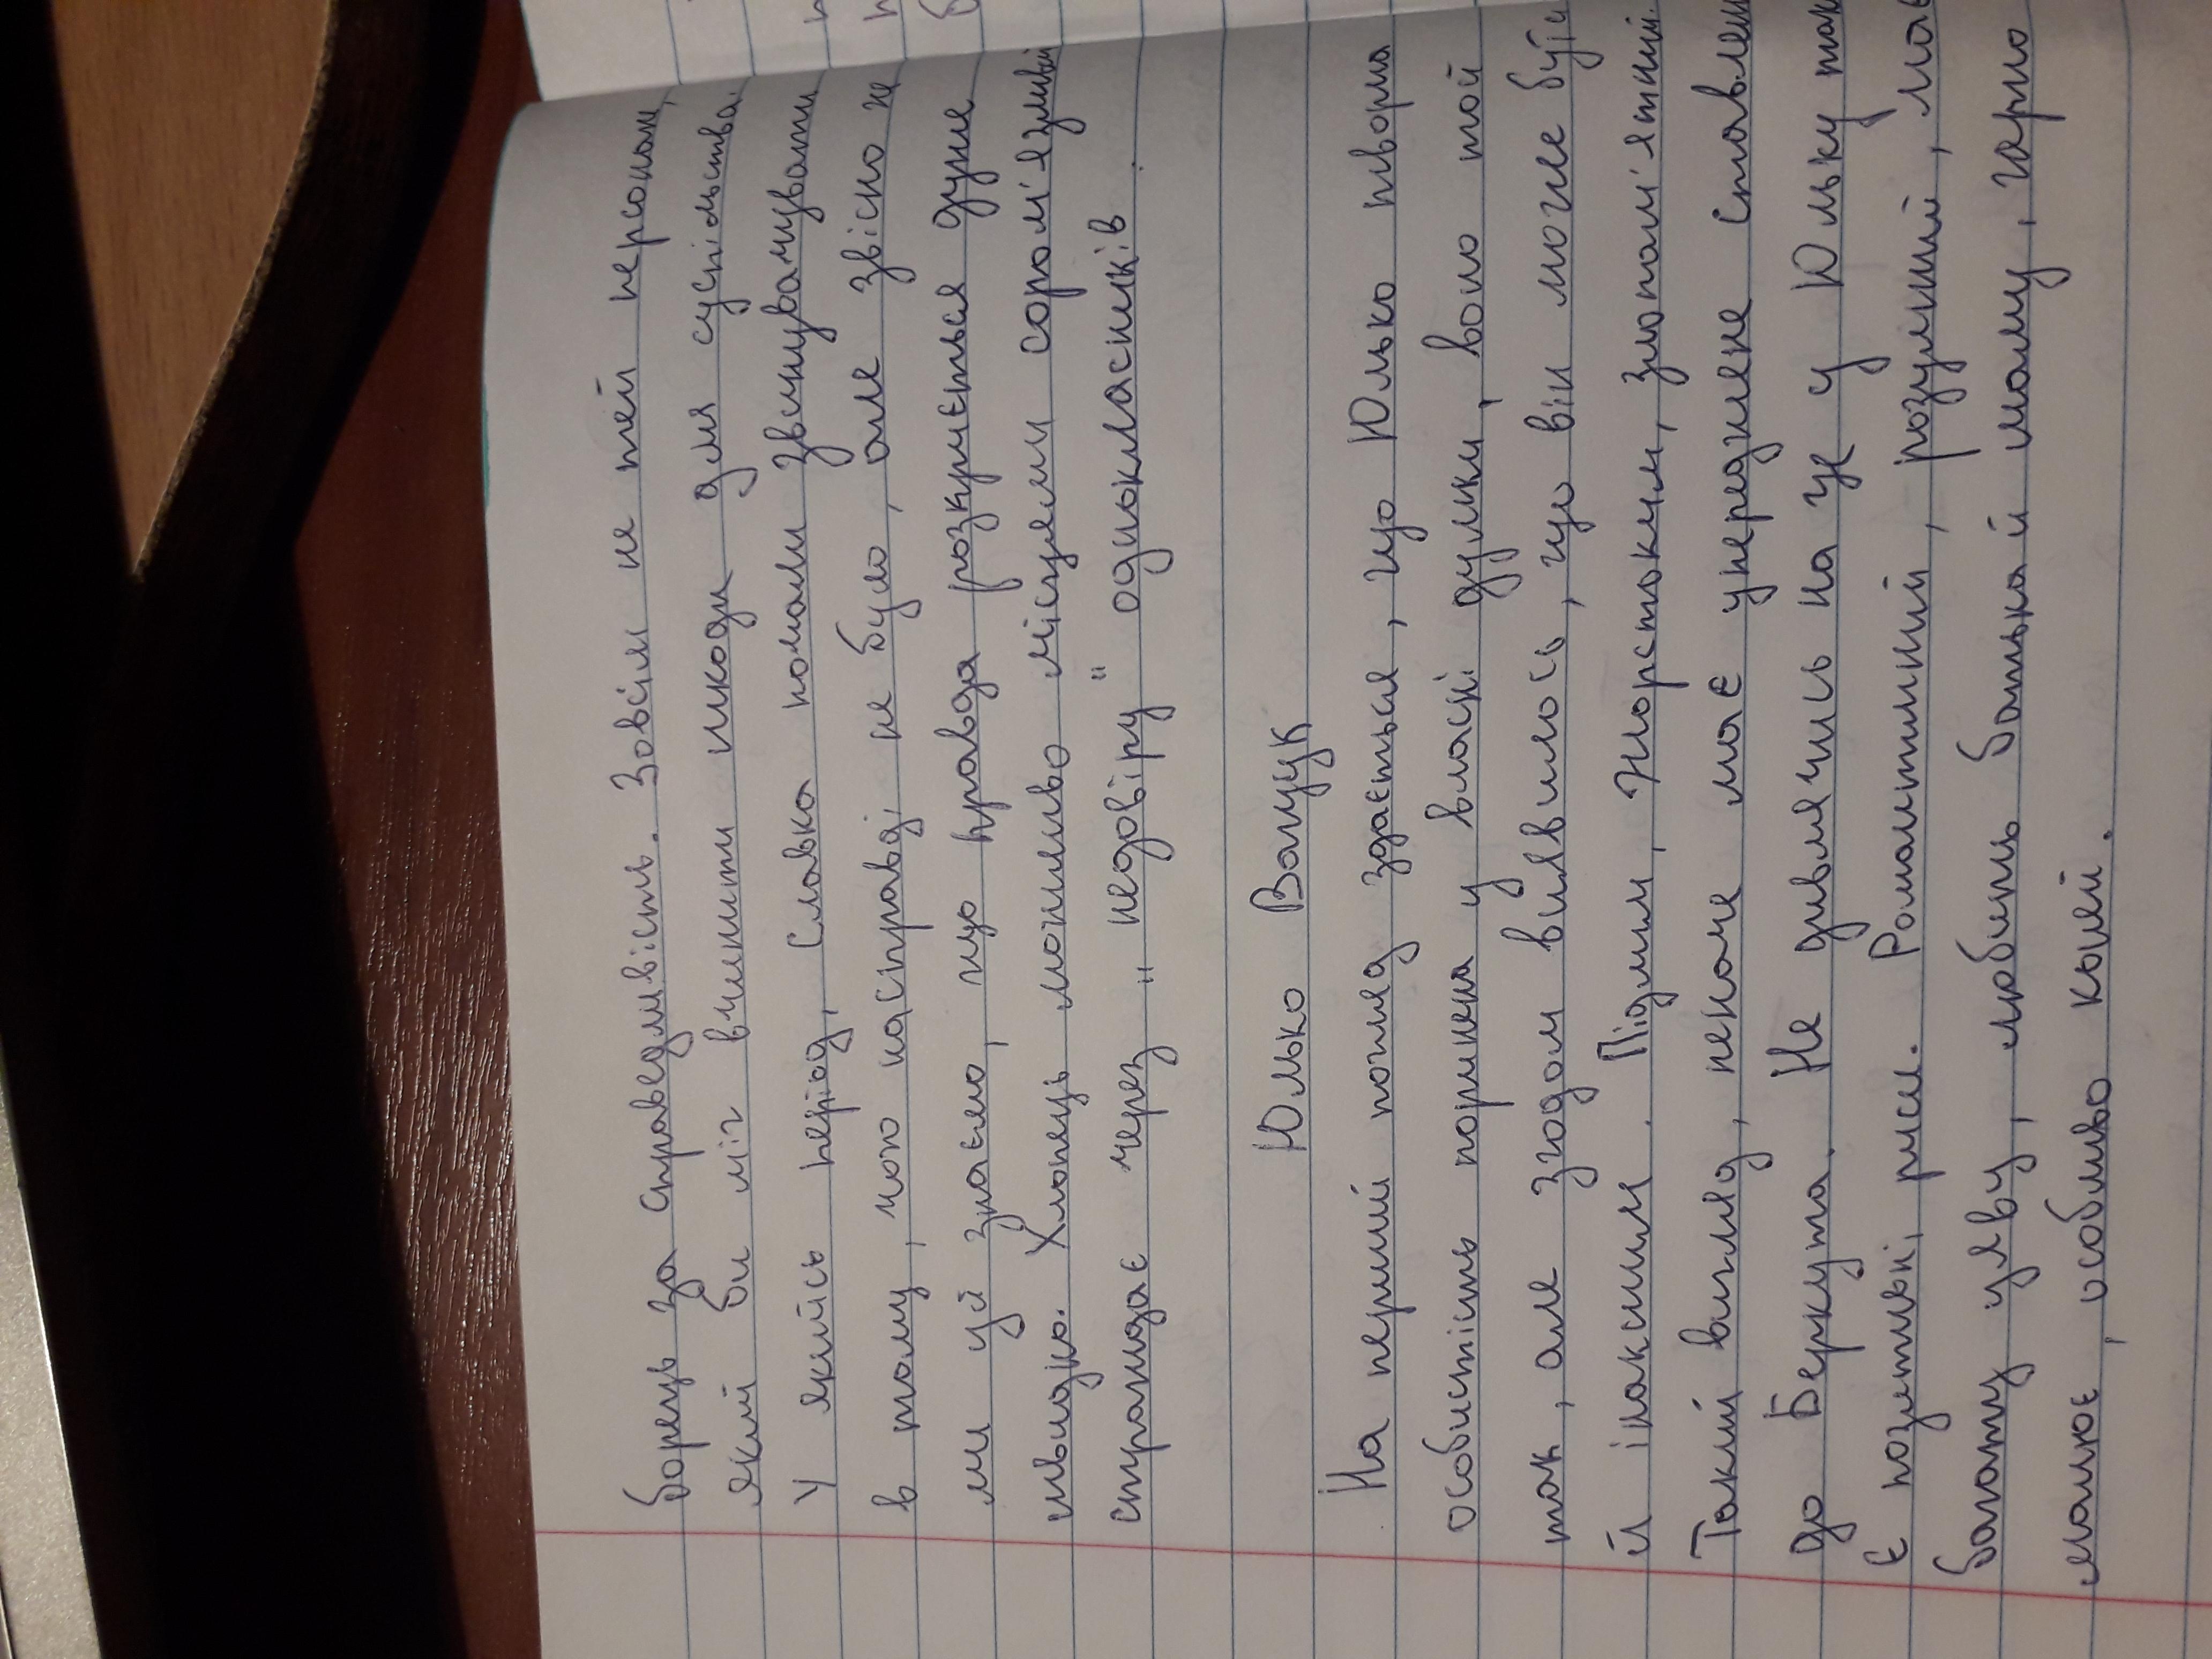 борець за справедливість. Зовсім не тей персонаж,
який би міг вчинити шкоди для суспільства.
У якийсь період, Славка почали звинувачувати
в тому, чого насправді не було, але звісно ж
ми це знаємо, що правда розкриється дуже
швидко. Хлопець можливо місцями сором'язливий
страждає через „недовіру" однокласників.
Юлько Ващук
На перший погляд здається, що Юлько творча
особистість поринена у власні думки, воно той
так, але згодом виявилось, що він може бути
й інакшим. Підлим, жорстоким, злопам'ятний.
Такий вигляд, неначе має упереджене ставлен
до Беркута. Не дивлячись на це у Юльку так
є позитивні риси. Романтичний, розумний, має
багату уяву, любить батька й маму, гарно
малює, особливо коней.